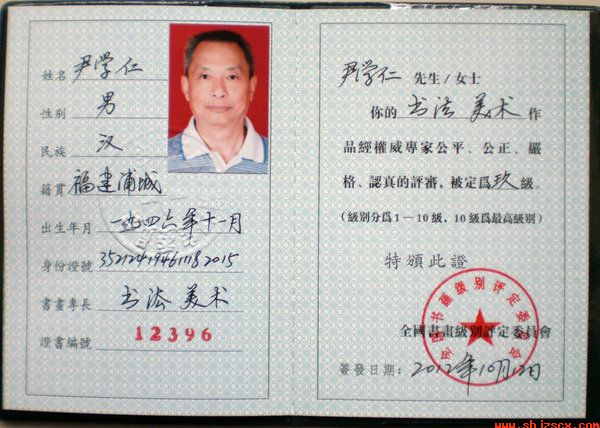 姓名 尹学仁
性别 男
民族 汉
籍贯 福建浦城
出生年月 一九四六年十一月
身份證號 352124194611182015
書畫專長 书法 美术
證書編號 12396
尹学仁 先生/女士
你的 书法 美术 作
品經權威專家公平、公正、嚴
格、認真的評審，被定爲玖級。
(級別分爲1—10級，10級爲最高級別)
特頒此證
全国书画级别评定委员会
全國書畫級別評定委員會
簽發日期：2012年10月12日
www.shizscx.com